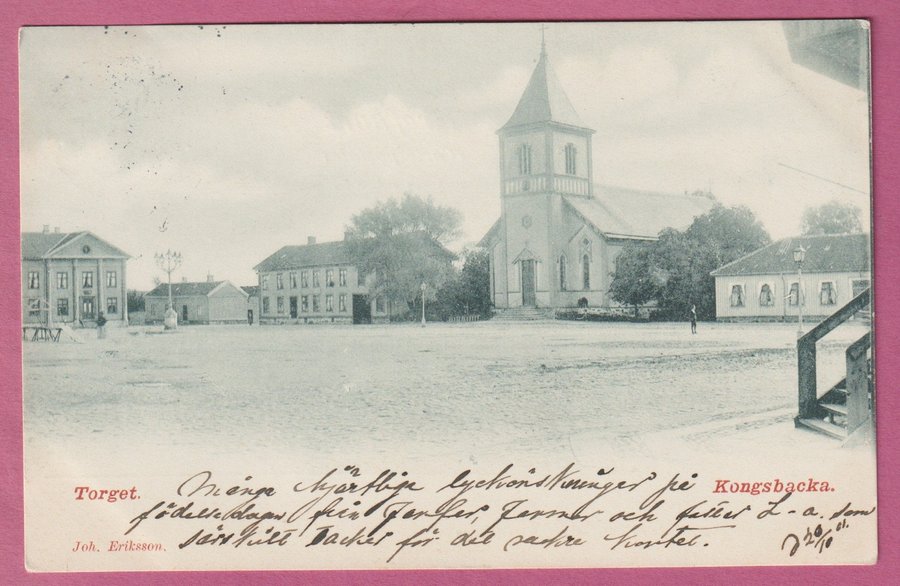 Torget.
Kongsbacka.
Många hjärtliga lyckönskningar på
födelsedagen från Farfar, Farmor och faster L-a. som
särskilt tackar för det vackra kortet.
Joh. Eriksson.